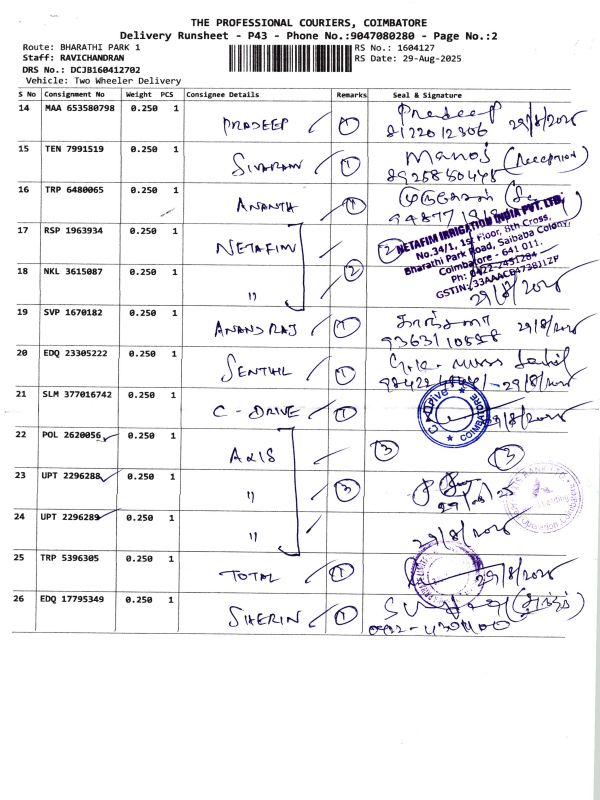 THE PROFESSIONAL COURIERS, COIMBATORE
Delivery Runsheet - P43 - Phone No.:9047080280 - Page No.:2
Route: BHARATHI PARK 1
RS No.: 1604127
Staff: RAVICHANDRAN
RS Date: 29-Aug-2025
DRS No.: DCJB160412702
Vehicle: Two Wheeler Delivery
S No Consignment No Weight PCS Consignee Details Remarks Seal & Signature
14 MAA 653580798 0.250 1 PRADEEP 1 Pradeep 29/8/2025
8122012306
15 TEN 7991519 0.250 1 SIVARAM 1 Manoj (Reception)
8925850448
16 TRP 6480065 0.250 1 ANANTH 1
17 RSP 1963934 0.250 1 NETAFIM 2
NETAFIM IRRIGATION INDIA PVT. LTD.
No.34/1, 1st Floor, 8th Cross,
Bharathi Park Road, Saibaba Colony,
Coimbatore - 641 011.
18 NKL 3615087 0.250 1 " 2
29/8/2025
19 SVP 1670182 0.250 1 ANANDRAJ 1 29/8/2025
20 EDQ 23305222 0.250 1 SENTHIL 1
29/8/2025
21 SLM 377016742 0.250 1 C-DRIVE 1 29/8/2025
22 POL 2620056 0.250 1 AXIS 3 3
23 UPT 2296288 0.250 1 " 3
24 UPT 2296289 0.250 1 " 29/8/2025
25 TRP 5396305 0.250 1 TOTAL 1 29/8/2025
26 EDQ 17795349 0.250 1 SHERIN 1